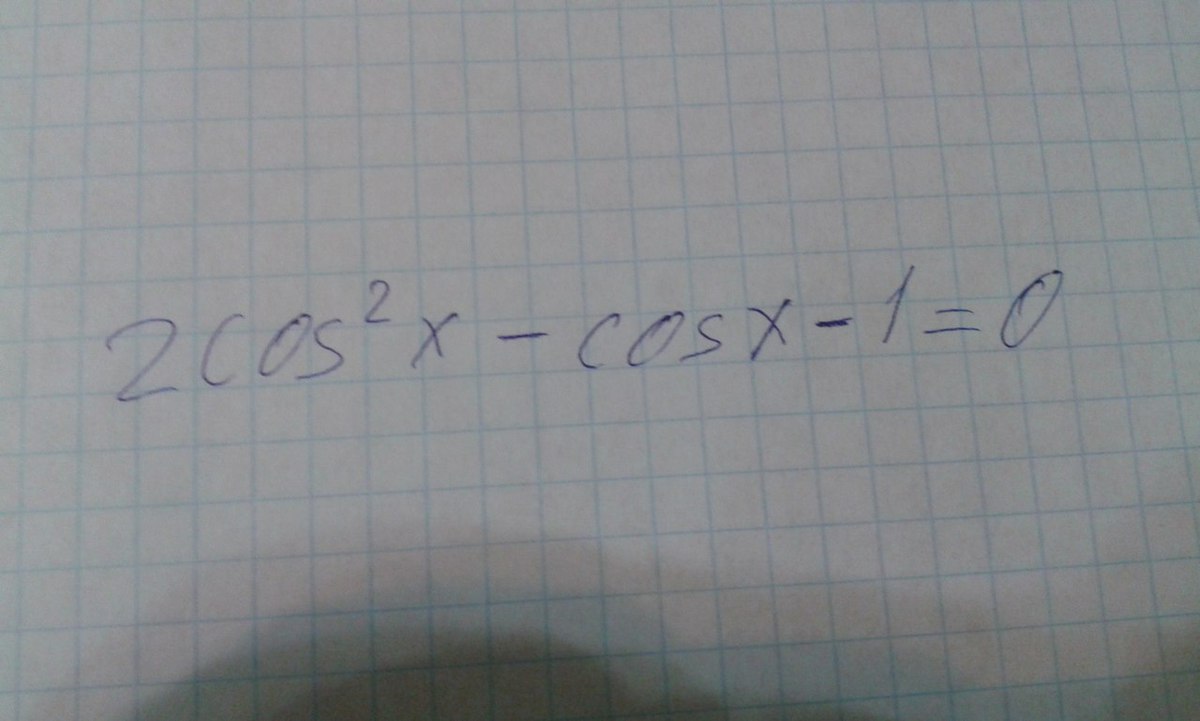 2cos²x - cosx - 1 = 0